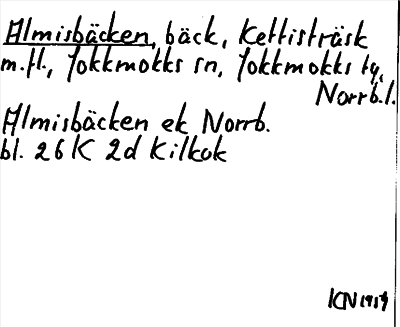 Almisbäcken, bäck, Kettisträsk
m.fl., Jokkmokks sn, Jokkmokks tg,
Norrb.l.
Almisbäcken ek Norrb.
bl. 26 K 2d Kilkok